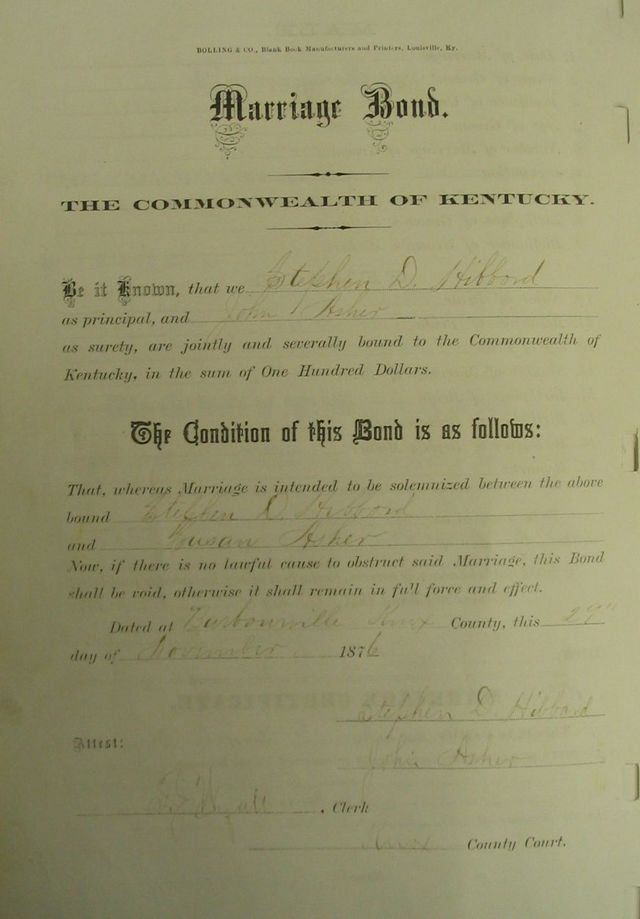 BOLLING & CO., Blank Book Manufacturers and Printers, Louisville, Ky.
Marriage Bond.
THE COMMONWEALTH OF KENTUCKY.
Be it Known, that we Stephen D. Hibbord
as principal, and John Asher
as surety, are jointly and severally bound to the Commonwealth of
Kentucky, in the sum of One Hundred Dollars.
The Condition of this Bond is as follows:
That, whereas Marriage is intended to be solemnized between the above
bound Stephen D. Hibbord
and Susan Asher
Now, if there is no lawful cause to obstruct said Marriage, this Bond
shall be void, otherwise it shall remain in full force and effect.
Dated at Barbourville Knox County, this 29"
day of November 1876
Stephen D Hibbord
Attest:
John Asher
, Clerk
Knox County Court.